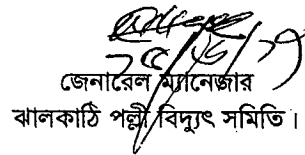 জেনারেল ম্যানেজার
ঝালকাঠি পল্লী বিদ্যুৎ সমিতি।